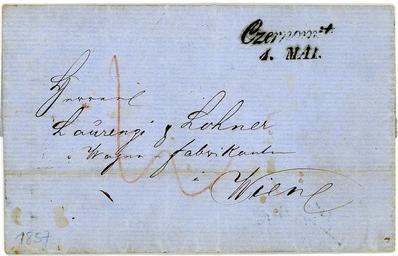 Czernowitz
4. MAI.
Herren
Laurenzi & Lohner
Wagen-fabrikant
in
Wiene
1857